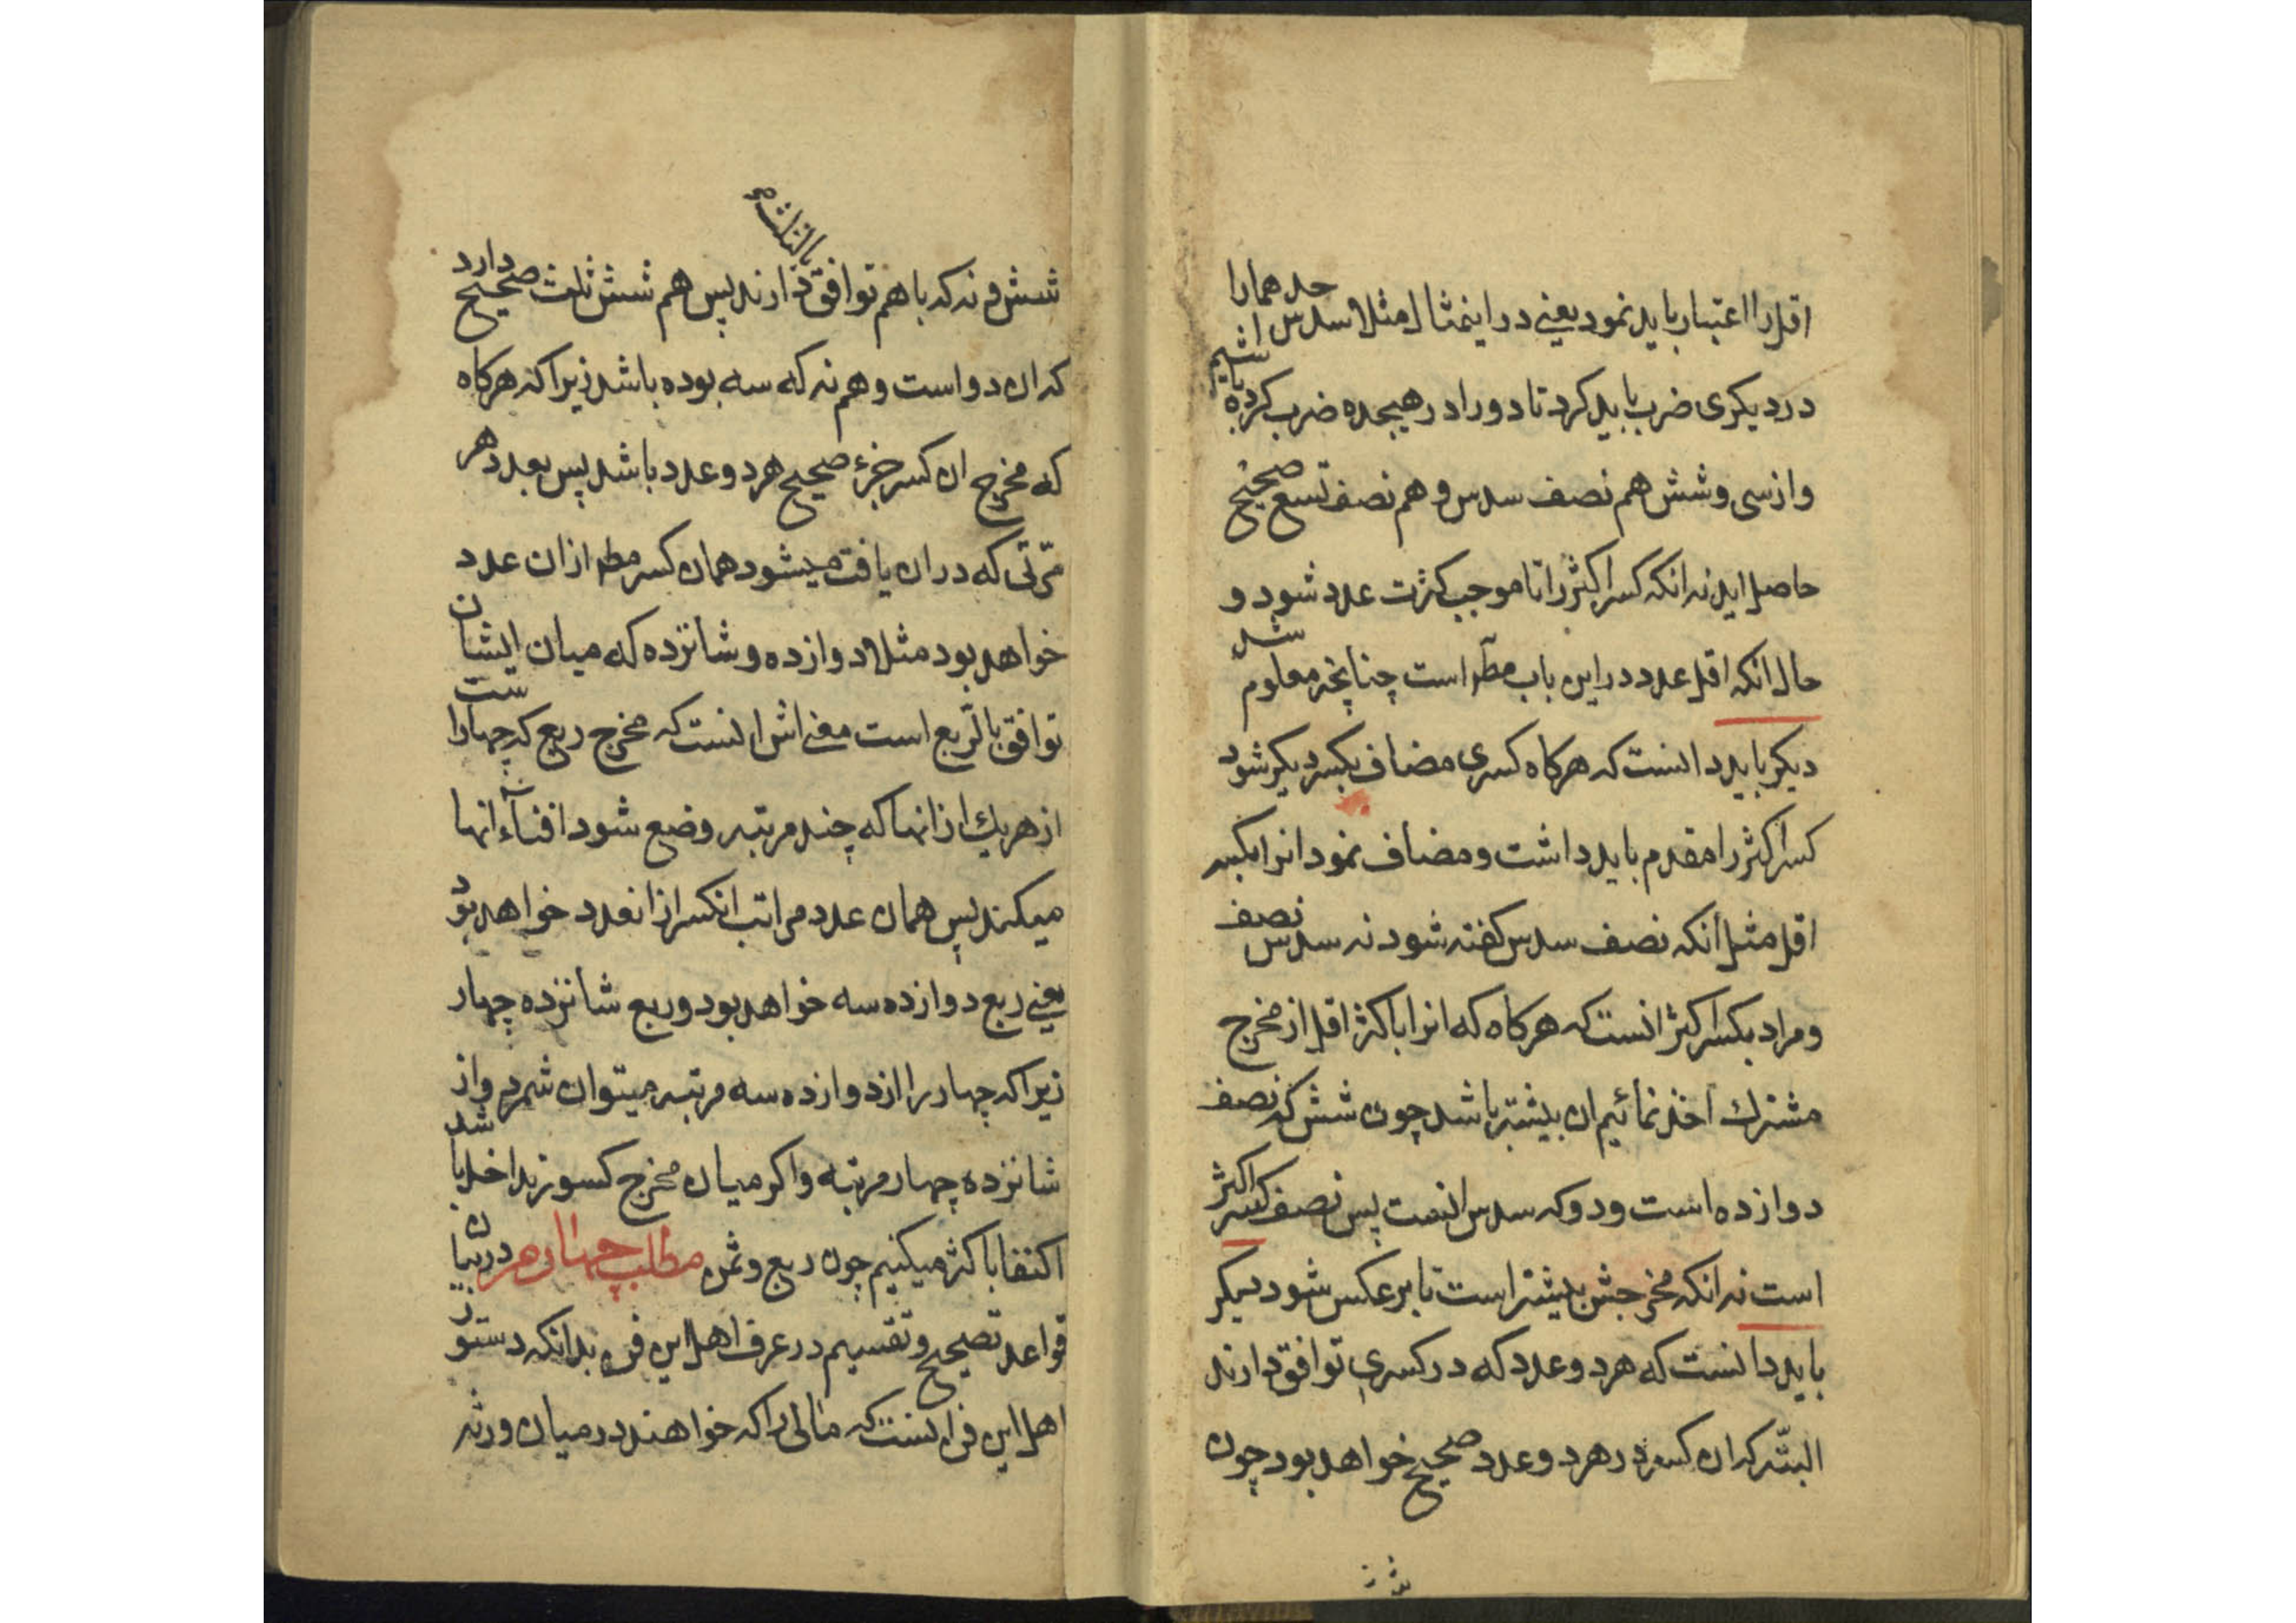 اقل را اعتبار باید نمود یعنی در اینمثال مثلا سدس احدهما را
در دیکری ضرب باید کرد تا دو را در هیجده ضرب کرده باشیم
و از سی و شش هم نصف سدس و هم نصف تسع صحیح
حاصل اید نه انکه کسر اکثر را تا موجب کثرت عدد شود و
حال انکه اقل عدد در این باب مطـ است چنانچه معلوم شد
دیکر باید دانست که هرکاه کسری مضاف بکسر دیکر شود
کسر اکثر را مقدم باید داشت و مضاف نمود انرا بکسر
اقل مثل آنکه نصف سدس کفته شود نه سدس نصف
و مراد بکسر اکثر انست که هرکاه که انرا با کثر اقل از مخرج
مشترك اخذ نمائیم ان بیشتر باشد چون شش که نصف
دوازده است و دو که سدس انست پس نصف کسر اکثر
است نه انکه مخرجش بیشتر است تا بر عکس شود دیکر
باید دانست که هر دو عدد که در کسری توافق دارند
البتّه که ان کسر در هر دو عدد صحیح خواهد بود چون
شش و نه که با هم توافق بالثلث دارند پس هم شش ثلث صحیح دارد
که ان دو است و هم نه که سه بوده باشد زیرا که هرکاه
که مخرج ان کسر جزء صحیح هر دو عدد باشد پس بعدد هر
مرّتی که در ان یافت میشود همان کسر مطـ از ان عدد
خواهد بود مثلا دوازده و شانزده که میان ایشان
توافق بالرّبع است معنی اش انست که مخرج ربع که چهار است
از هریك از انها که چند مرتبه وضع شود افناء انها
میکند پس همان عدد مراتب انکسر از انعدد خواهد بود
یعنی ربع دوازده سه خواهد بود و ربع شانزده چهار
زیرا که چهار را از دوازده سه مرتبه میتوان شمرد و از
شانزده چهار مرتبه و اکر میان مخرج کسور تداخل باشد
اکتفا باکثر میکنیم چون ربع و ثمن مطلب چهارم در بیان
قواعد تصحیح و تقسیم در عرف اهل این فن بدانکه دستور
اهل این فن انست که مالی را که خواهند در میان ورثه